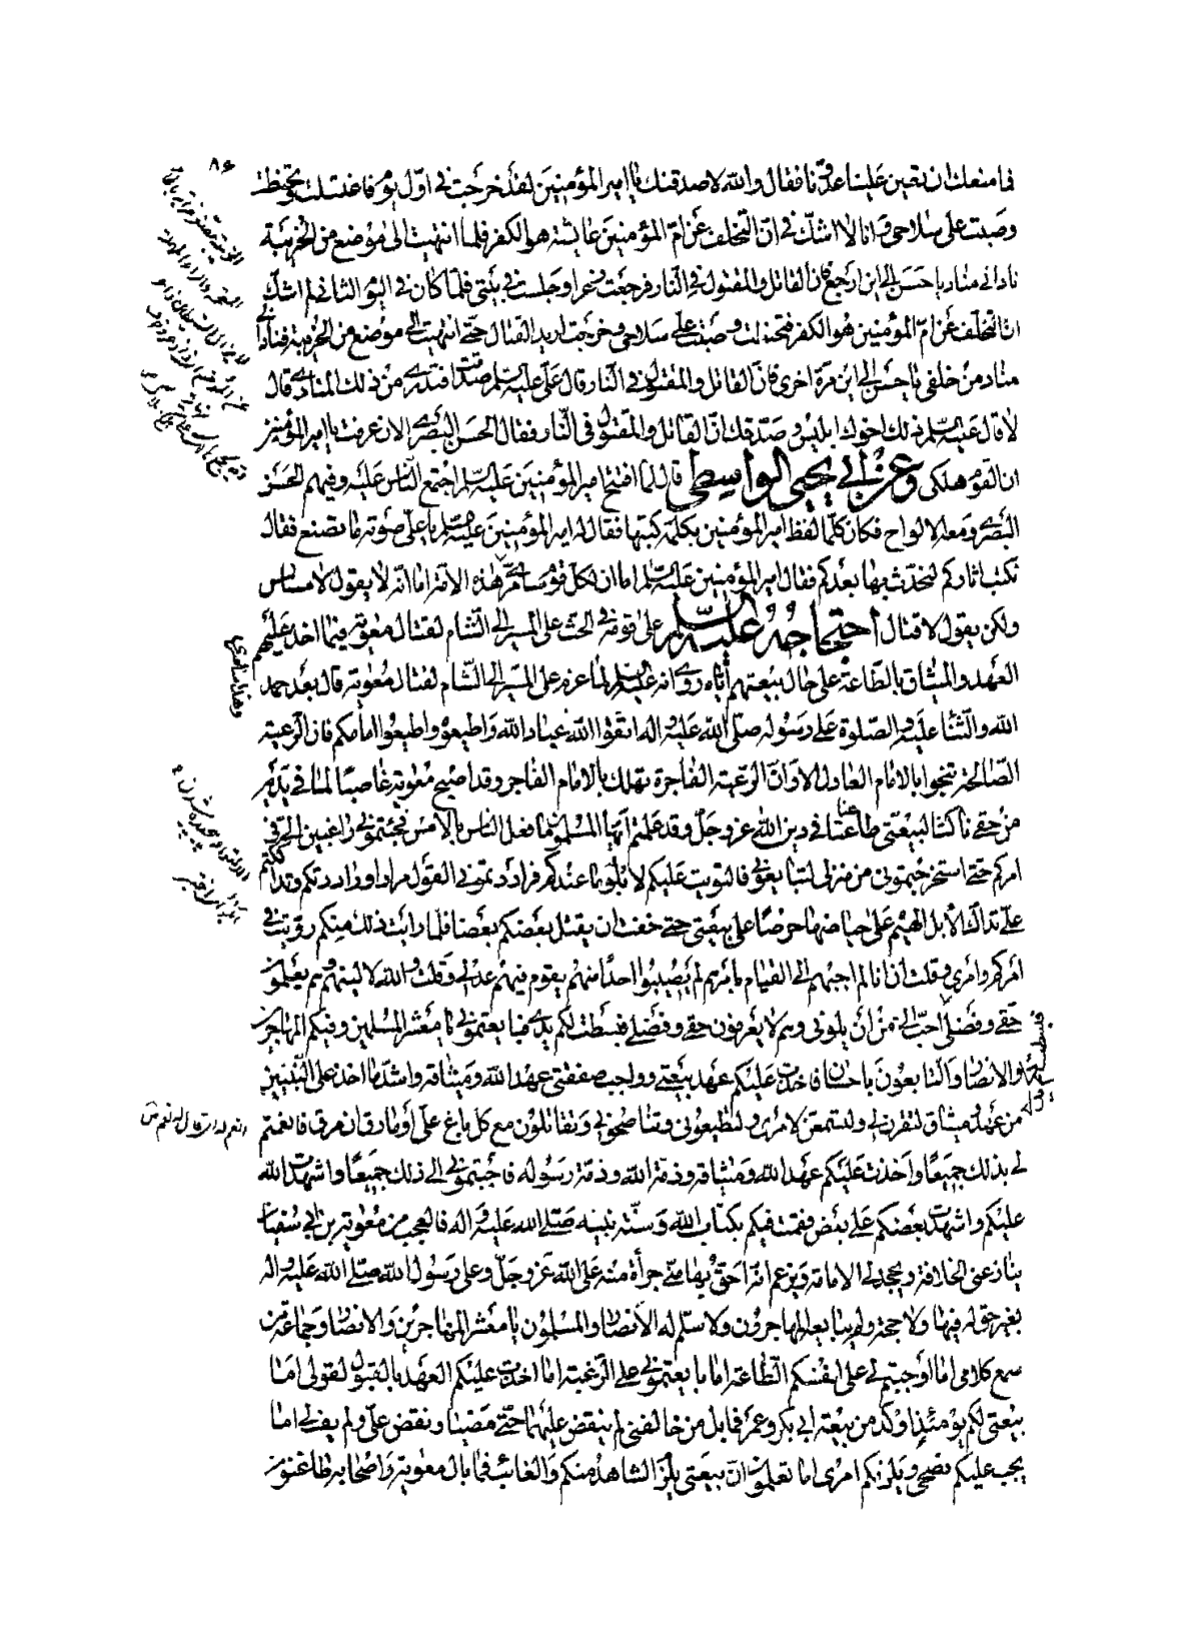 ٨٤
فما منعك ان تعين علينا عدونا فقال والله لاصدقنك يا امير المؤمنين لقد خرجت في اول يوم فاغتسلت وتحنطت
وصببت علي سلاحي وانا لا اشك في ان التخلف عن ام المؤمنين عايشة هو الكفر فلما انتهيت الى موضع من الخريبة
ناداني مناد يا حسن الى اين ارجع فان القاتل والمقتول في النار فرجعت ذعرا وجلست في بيتي فلما كان في اليوم الثاني لم اشك
ان التخلف عن ام المؤمنين هو الكفر فتحنطت وصببت علي سلاحي وخرجت اريد القتال حتى انتهيت الى موضع من الخريبة فناداني
مناد من خلفي يا حسن الى اين مرة اخرى فان القاتل والمقتول في النار قال علي عليه السلام صدقت افتدري من ذلك المنادي قال
لا قال عليه السلام ذلك اخوك ابليس وصدقك ان القاتل والمقتول في النار فقال الحسن البصري الان عرفت يا امير المؤمنين
ان القوم هلكى وعن ابي يحيى الواسطي قال لما افتتح امير المؤمنين عليه السلام اجتمع الناس عليه وفيهم الحسن
البصري ومعه الالواح فكان كلما لفظ امير المؤمنين بكلمة كتبها فقال له امير المؤمنين عليه السلام باعلى صوته ما تصنع فقال
نكتب اثاركم لنحدث بها بعدكم فقال امير المؤمنين عليه السلام اما ان لكل قوم سامري وهذا سامري هذه الامة اما انه لا يقول لا مساس
ولكن يقول لا قتال احتجاجه عليه السلام على قومه في الحث على المسير الى الشام لقتال معوية فيما اخذ عليهم
العهد والميثاق بالطاعة على حال بيعتهم اياه روي انه عليه السلام لما عزم على المسير الى الشام لقتال معوية قال بعد حمد
الله والثناء عليه والصلوة على رسوله صلى الله عليه واله اتقوا الله عباد الله واطيعوه واطيعوا امامكم فان الرعية
الصالحة تنجوا بالامام العادل الا وان الرعية الفاجرة تهلك بالامام الفاجر وقد اصبح معوية غاصبا لما في يديه
من حقي ناكثا لبيعتي طاعنا في دين الله عز وجل وقد علمتم ايها المسلمون ما فعل الناس بالامس فجئتموني راغبين الي في
امركم حتى استخرجتموني من منزلي لتبايعوني فالتويت عليكم لابلو ما عندكم فراددتموني القول مرارا وراددتكم وتداككتم
علي تداك الابل الهيم على حياضها حرصا على بيعتي حتى خفت ان يقتل بعضكم بعضا فلما رايت ذلك منكم رويت في
امركم وامري وقلت ان انا لم اجبهم الى القيام بامرهم لم يصيبوا احدا منهم يقوم فيهم مقامي عدلي وقلت والله لالينهم وهم يعلمون
حقي وفضلي احب الي من ان يلوني وهم لا يعرفون حقي وفضلي فبسطت لكم يدي فبايعتموني يا معشر المسلمين وفيكم المهاجرين
والانصار والتابعون باحسان فاخذت عليكم عهد بيعتي وواجب صفقتي عهد الله وميثاقه واشد ما اخذ على النبيين
من عهد وميثاق لتقرن لي ولتسمعن لامري ولتطيعوني وتناصحوني وتقاتلون معي كل باغ علي او مارق ان مرق فانعمتم
لي بذلك جميعا واخذت عليكم عهد الله وميثاقه وذمة الله وذمة رسوله فاجبتموني الى ذلك جميعا واشهدت الله
عليكم واشهدت بعضكم على بعض فقمت فيكم بكتاب الله وسنة نبيه صلى الله عليه واله فالعجب من معوية بن ابي سفيان
ينازعني الخلافة ويجحدني الامامة ويزعم انه احق بها مني جرأة منه على الله عز وجل وعلى رسول الله صلى الله عليه واله
بغير حق له فيها ولا حجة ولم يبايعه المهاجرون ولا سلم له الانصار والمسلمون يا معشر المهاجرين والانصار وجماعة من
سمع كلامي اما اوجبتم لي على انفسكم الطاعة اما بايعتموني على الرغبة اما اخذت عليكم العهد بالقبول لقولي اما
بيعتي لكم يومئذ اوكد من بيعة ابي بكر وعمر فما بال من خالفني لم ينقض عليهما حتى مضيا ونقض علي ولم يف لي اما
يجب عليكم نصحي ويلزمكم امري اما تعلمون ان بيعتي يلزم الشاهد منكم والغائب فما بال معوية واصحابه طاعنون